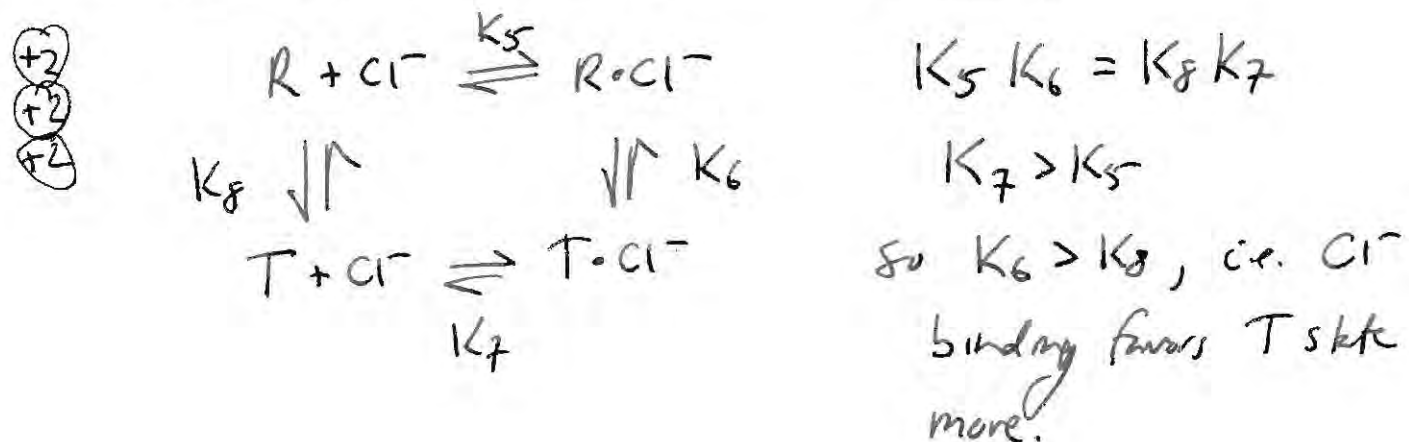 +2
+2
+2
R + Cl⁻ ⇌ R•Cl⁻
K₅
K₈ ⇌ ⇌ K₆
T + Cl⁻ ⇌ T•Cl⁻
K₇
K₅ K₆ = K₈ K₇
K₇ > K₅
so K₆ > K₈, i.e. Cl⁻
binding favors T state
more.